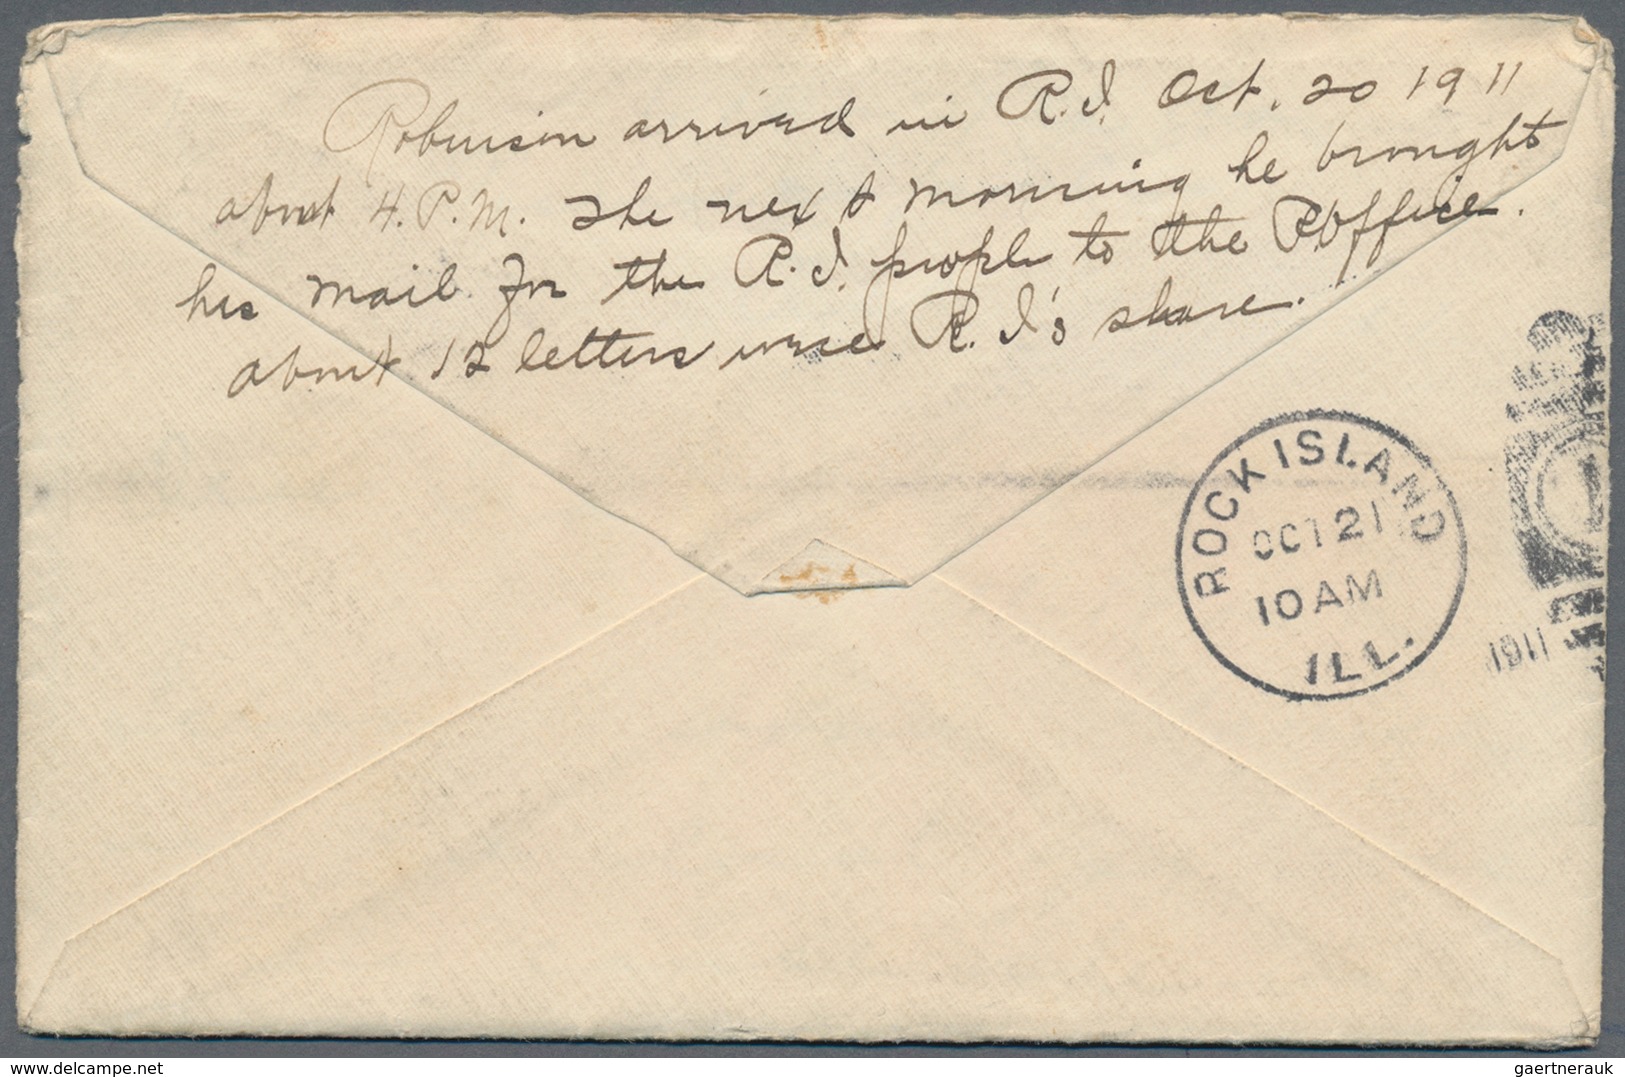 Robinson arrived in R.I. Oct. 20 1911
about 4.P.M. The next morning he brought
his mail for the R.I. people to the P.Office.
about 12 letters were R.I's share.
ROCK ISLAND
OCT 21
10 AM
ILL.
1911
delcampe.net
gaertnerauk